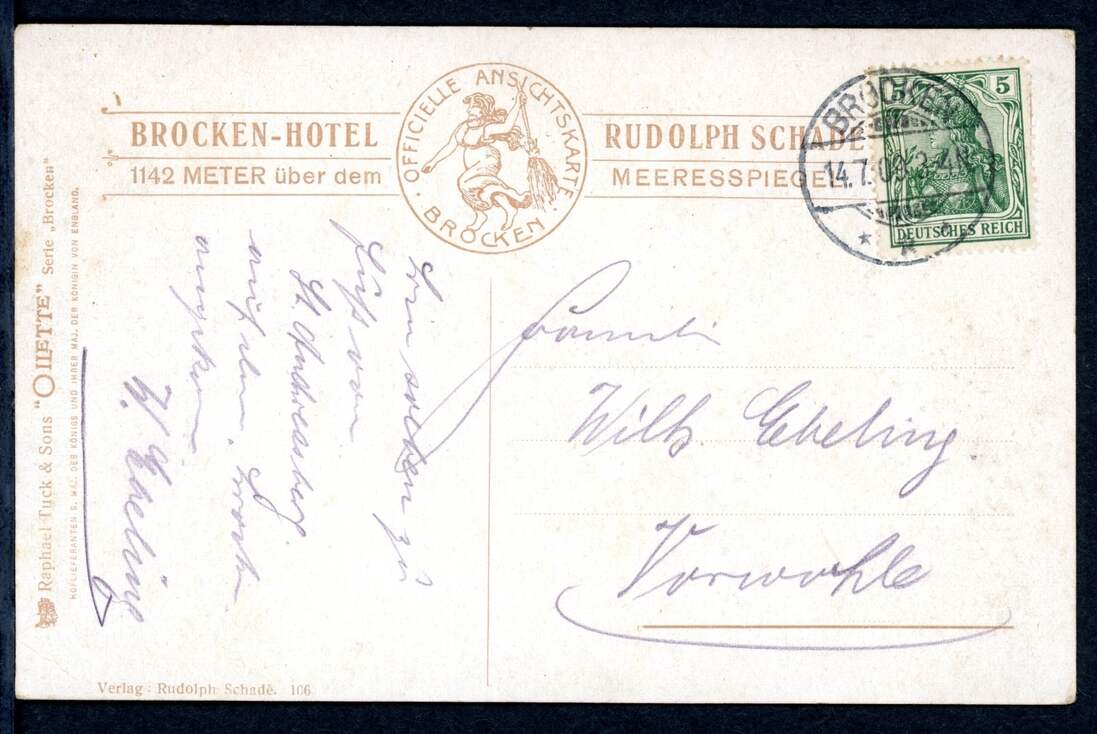 BROCKEN-HOTEL
1142 METER über dem
OFFICIELLE ANSICHTSKARTE
BROCKEN
RUDOLPH SCHADE
MEERESSPIEGEL
BROCKEN
14.7.09. 3-4N
5 5
DEUTSCHES REICH
Raphael Tuck & Sons "OILETTE" Serie „Brocken"
HOFLIEFERANTEN S. MAJ. DES KÖNIGS UND IHRER MAJ. DER KÖNIGIN VON ENGLAND.
zu
Fuß von
St. Andreasberg
auf dem Brocken
W. Ebeling
Familie
Wilh. Ebeling.
Vorwohle
Verlag: Rudolph Schade. 106